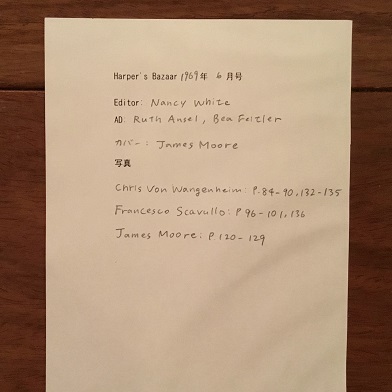 Harper's Bazaar 1969年 6月号
Editor: Nancy White
AD: Ruth Ansel, Bea Feitler
カバー: James Moore
写真
Chris Von Wangenheim: P.84-90,132-135
Francesco Scavullo: P 96-101,136
James Moore: P.120-129